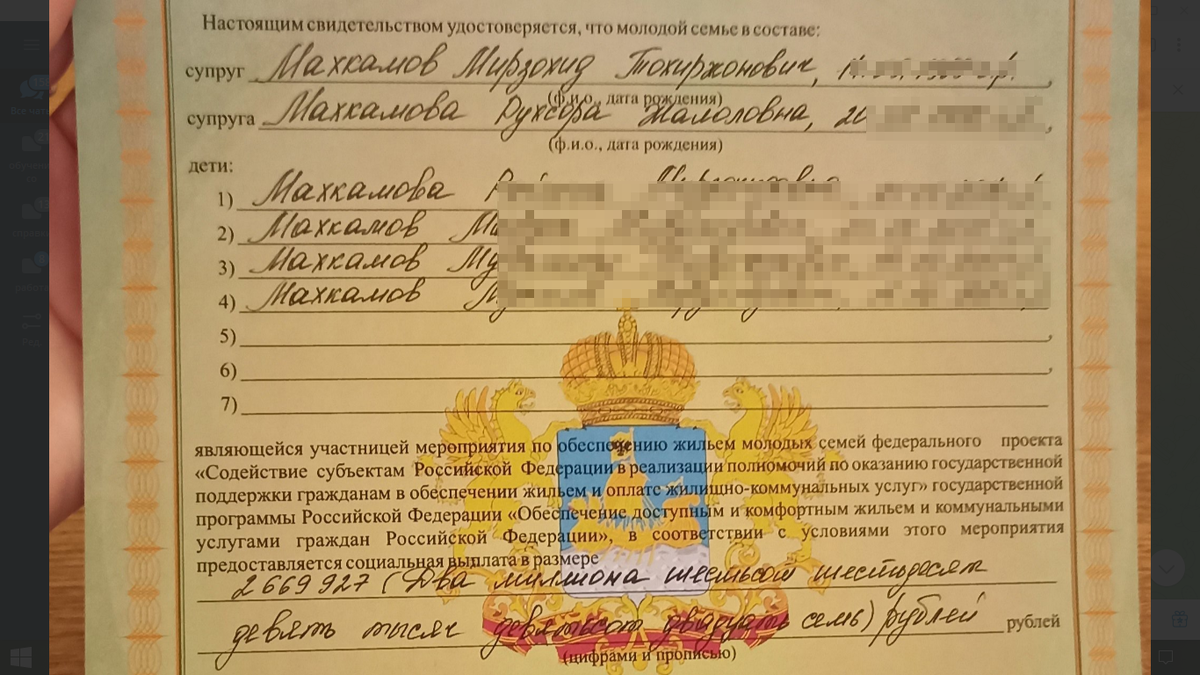 Настоящим свидетельством удостоверяется, что молодой семье в составе:
супруг Махкамов Мирзохид Тохиржонович,
(ф.и.о., дата рождения)
супруга Махкамова Рухсора Жалоловна, 20
(ф.и.о., дата рождения)
дети:
1) Махкамова
2) Махкамов
3) Махкамов
4) Махкамов
5)
6)
7)
являющейся участницей мероприятия по обеспечению жильем молодых семей федерального проекта
«Содействие субъектам Российской Федерации в реализации полномочий по оказанию государственной
поддержки гражданам в обеспечении жильем и оплате жилищно-коммунальных услуг» государственной
программы Российской Федерации «Обеспечение доступным и комфортным жильем и коммунальными
услугами граждан Российской Федерации», в соответствии с условиями этого мероприятия
предоставляется социальная выплата в размере
2 669 927 (Два миллиона шестьсот шестьдесят
девять тысяч девятьсот двадцать семь) рублей рублей
(цифрами и прописью)